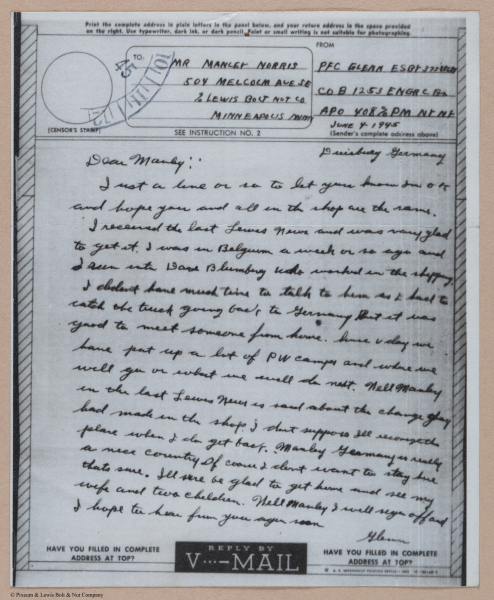 Print the complete address in plain letters in the panel below, and your return address in the space provided
on the right. Use typewriter, dark ink, or dark pencil. Faint or small writing is not suitable for photographing.
TO:
MR MANLEY NORRIS
504 MELCOLM AVE SE
% LEWIS BOLT NUT CO
MINNEAPOLIS MINN
FROM
PFC GLENN
CO B 1253 ENGR C BN
APO 408 % PM NY NY
JUNE 4 - 1945
(Sender's complete address above)
(CENSOR'S STAMP)
SEE INSTRUCTION NO. 2
Duisburg Germany
Dear Manley:
Just a line or so to let you know Im O K
and hope you and all in the shop are the same.
I received the last Lewis News and was very glad
to get it. I was in Belgium a week or so ago and
I seen into Dave Blumberg who worked in the shipping.
I didnt have much time to talk to him as I had to
catch the truck going back to Germany But it was
good to meet someone from home. Since V day we
have put up a lot of PW camps and where we
will go or what we will do next. Well Manley
in the last Lewis News it said about the change they
had made in the shop I dont suppose Ill recognize the
place when I do get back. Manley Germany is really
a nice country Of course I dont want to stay here
thats sure. Ill sure be glad to get home and see my
wife and two children. Well Manley I will sign off and
I hope to hear from you again soon
Glenn
HAVE YOU FILLED IN COMPLETE
ADDRESS AT TOP?
REPLY BY
V···—MAIL
HAVE YOU FILLED IN COMPLETE
ADDRESS AT TOP?
© Museum & Lewis Bolt & Nut Company